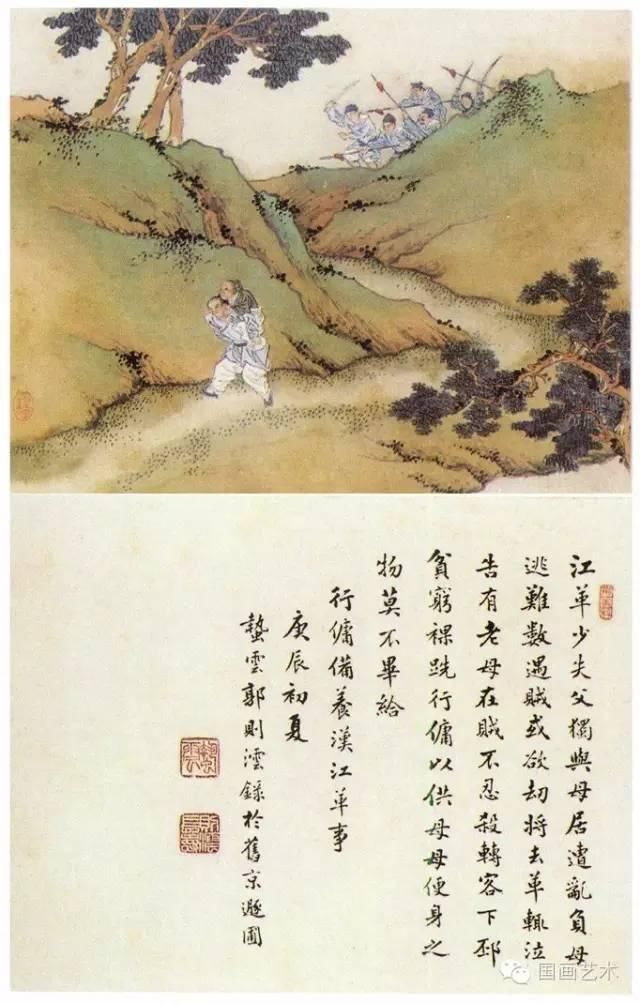 江革少失父獨與母居遭亂負母
逃難數遇賊或欲劫將去革輒泣
告有老母在賊不忍殺轉客下邳
貧窮裸跣行傭以供母母便身之
物莫不畢給
行傭備養漢江革事
庚辰初夏
蟄雲郭則澐錄於舊京遯圃
国画艺术